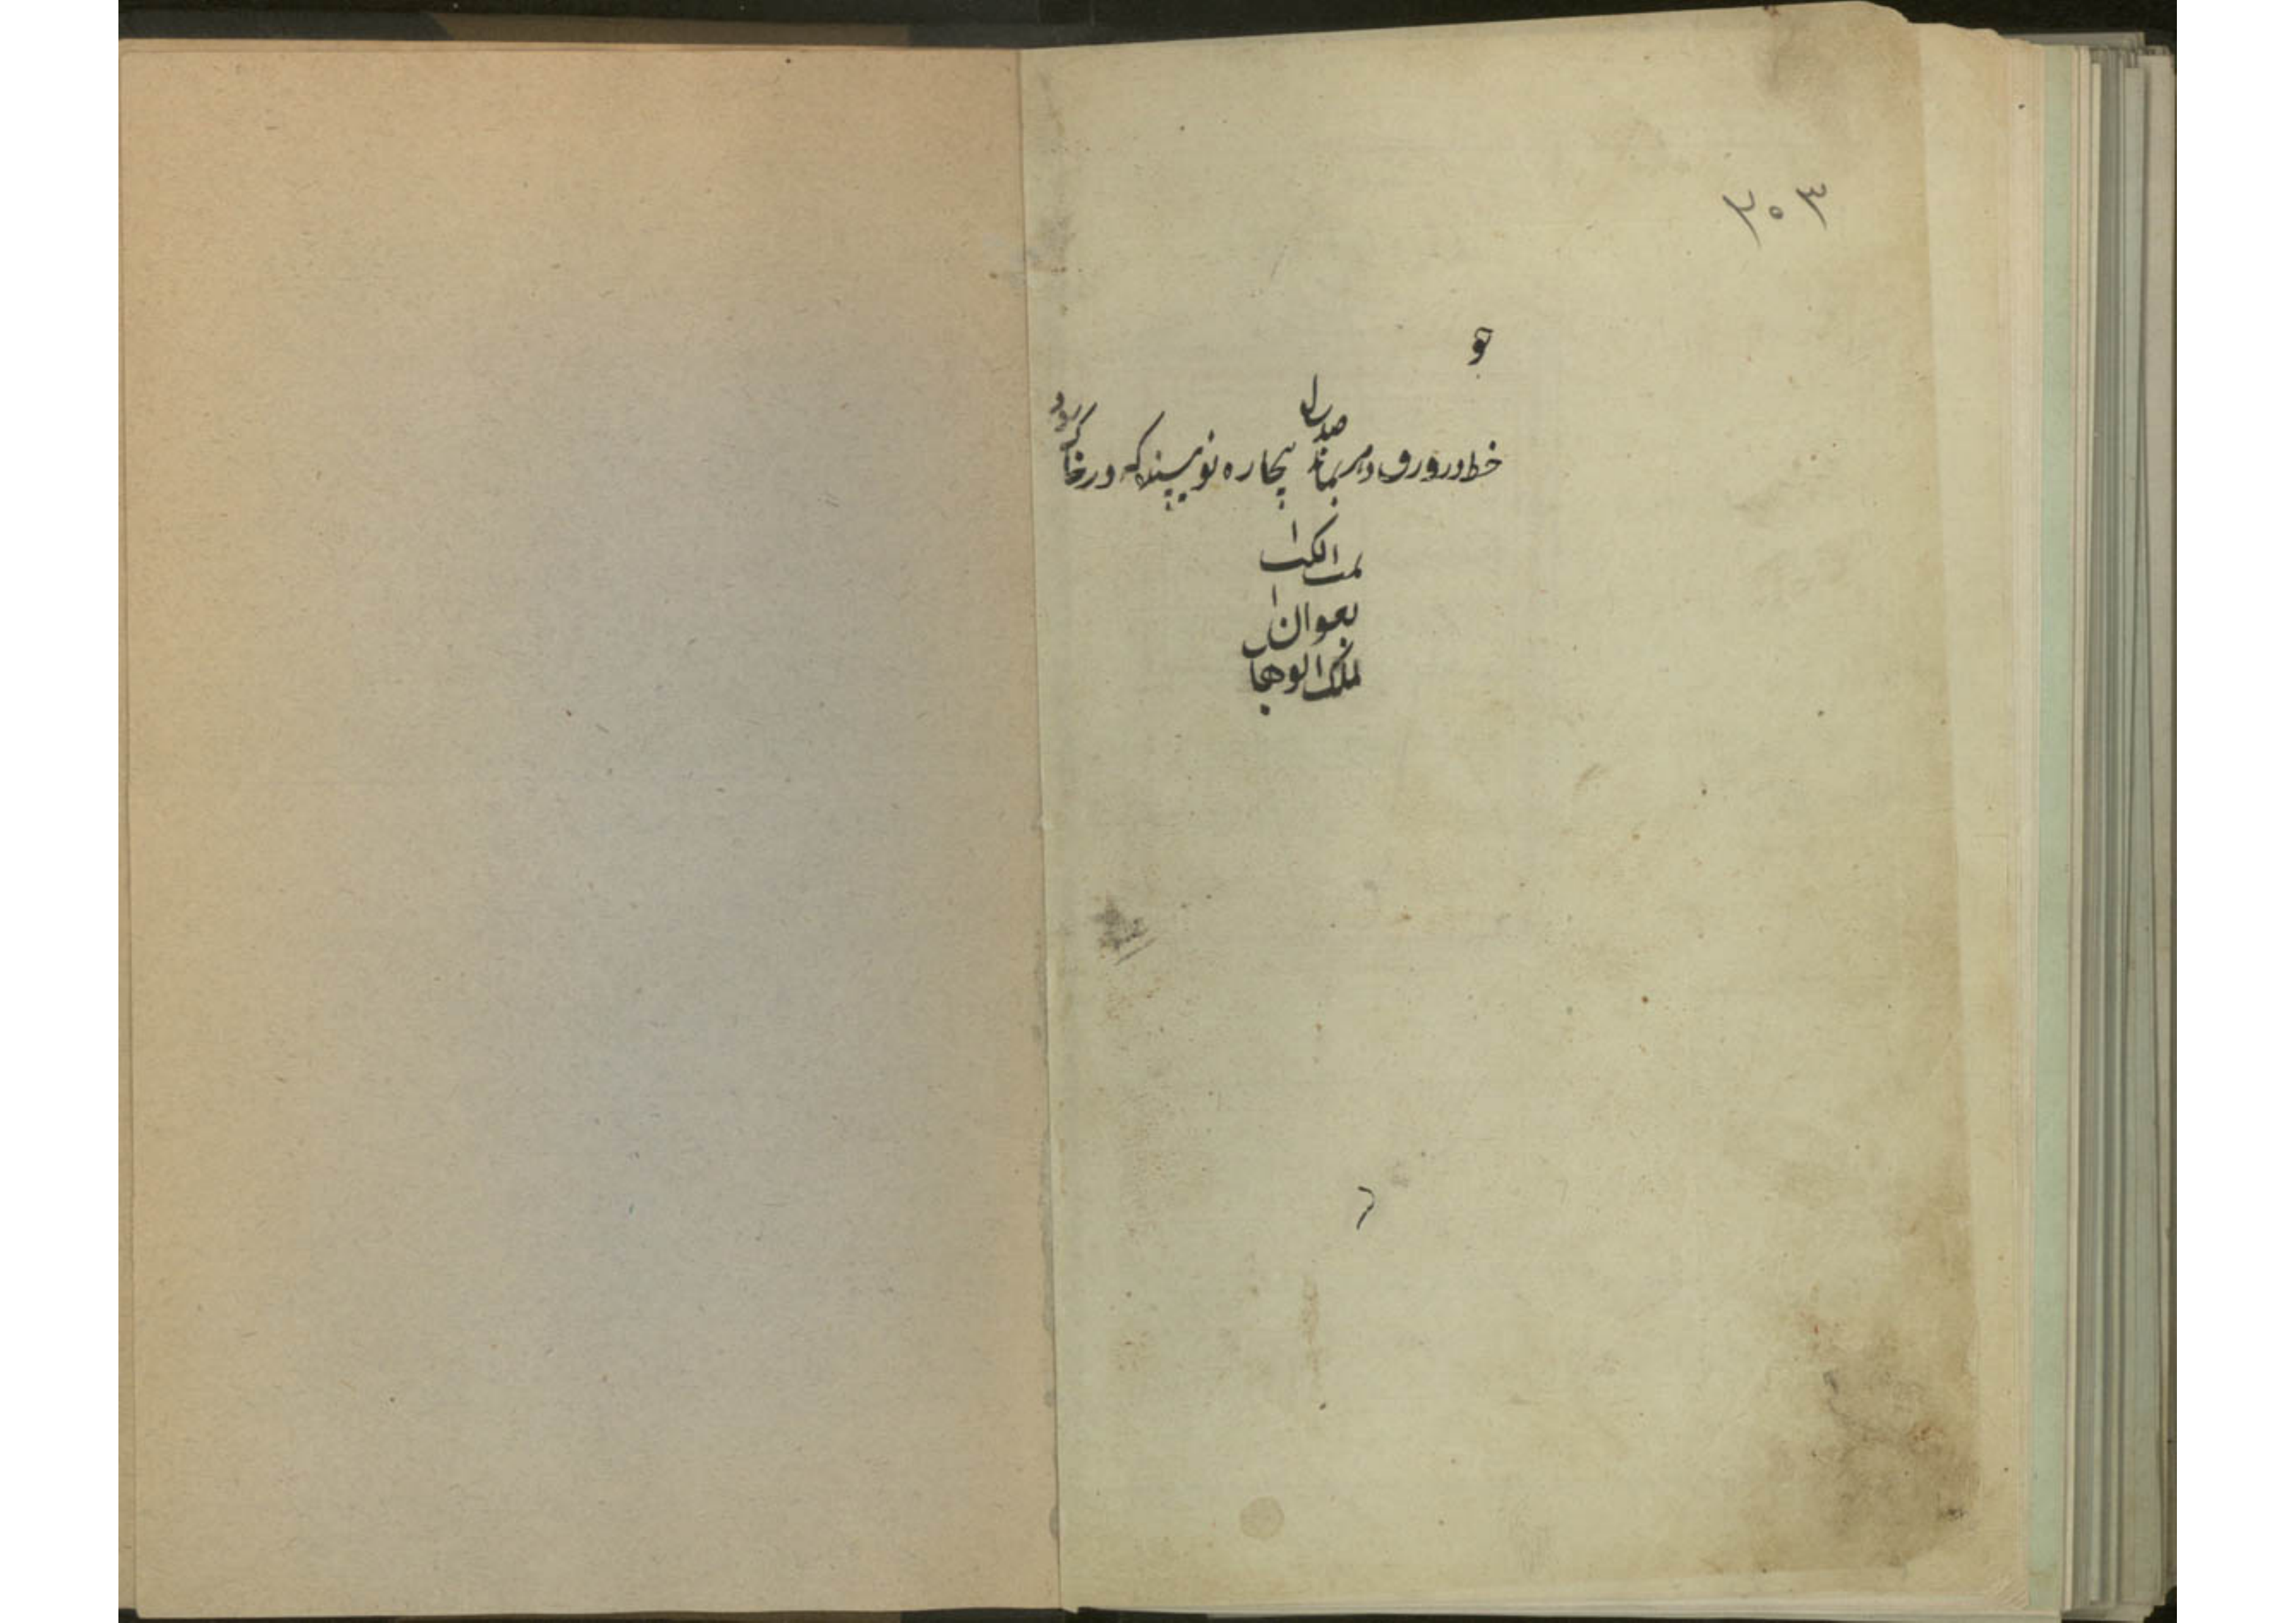 ۲۰۳
هو
خط در ورق دهر بماند صد سال
بیچاره نویسنده که در خاک رود
تمت الکتاب
بعون
ملک الوهاب